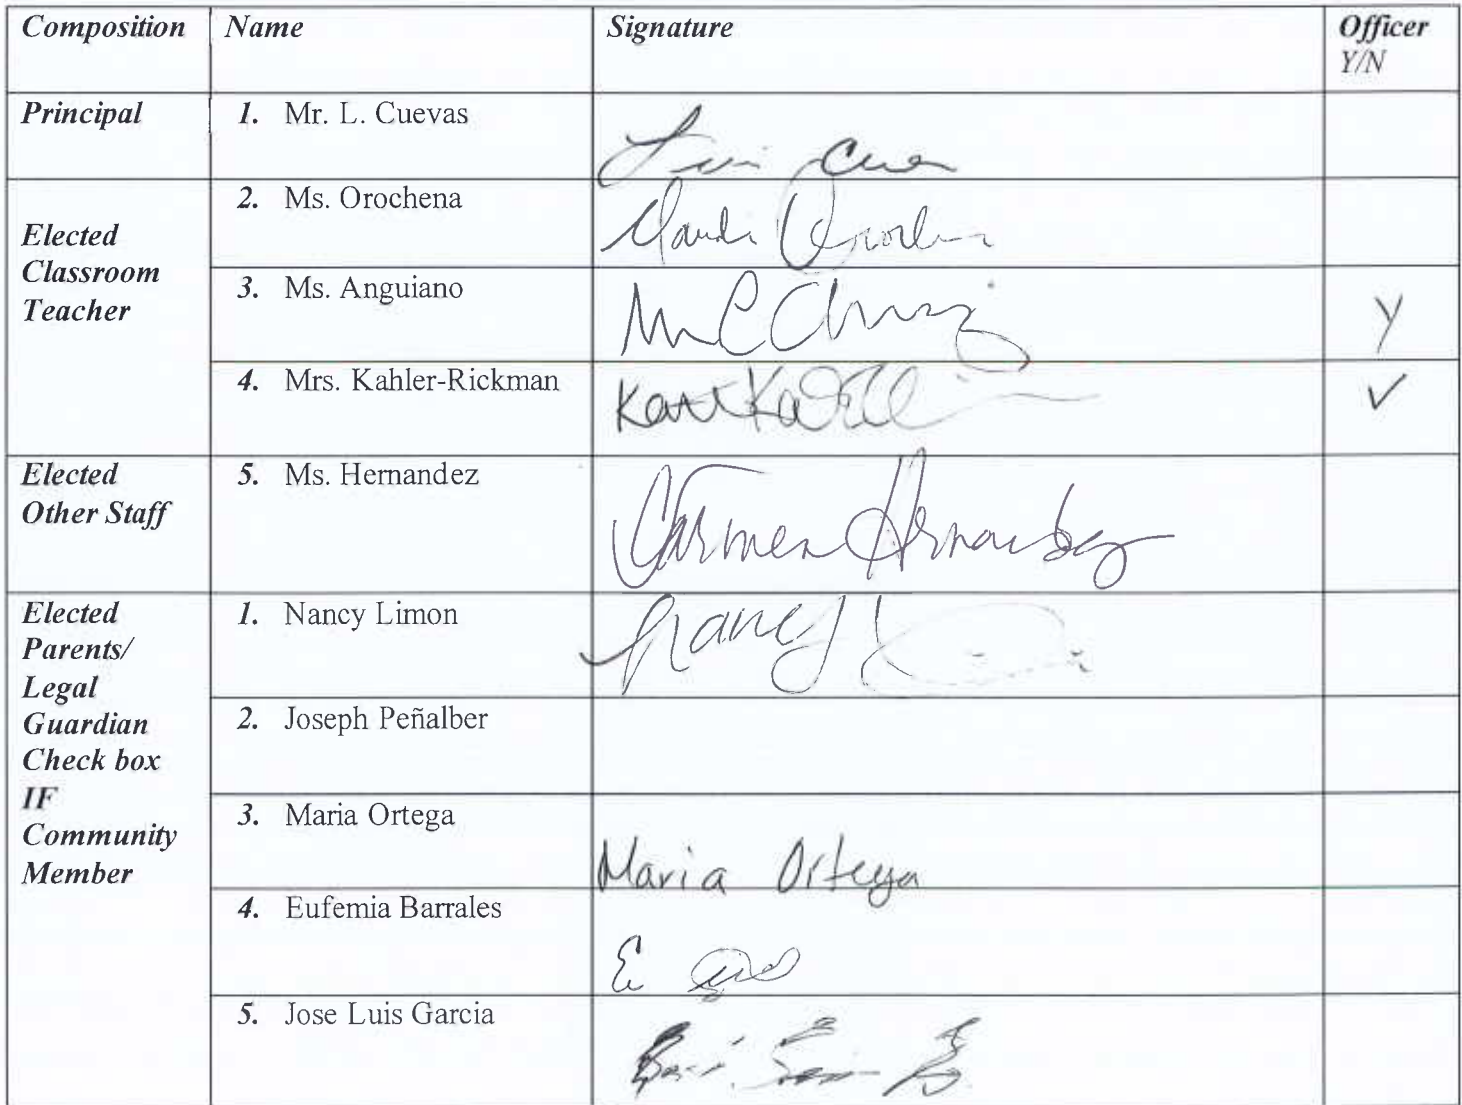 Composition Name Signature Officer
Y/N
Principal 1. Mr. L. Cuevas
Elected
Classroom
Teacher
2. Ms. Orochena
3. Ms. Anguiano Y
4. Mrs. Kahler-Rickman ✓
Elected
Other Staff
5. Ms. Hernandez Carmen Hernandez
Elected
Parents/
Legal
Guardian
Check box
IF
Community
Member
1. Nancy Limon Nancy
2. Joseph Peñalber
3. Maria Ortega
Maria Ortega
4. Eufemia Barrales
5. Jose Luis Garcia